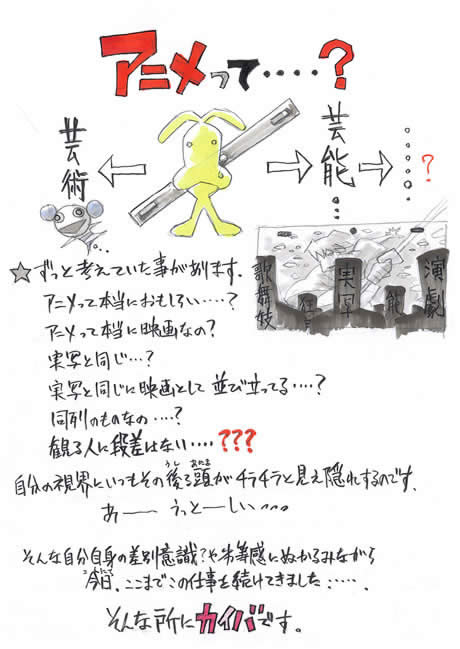 アニメって‥‥?
芸術
芸能
…
?
歌舞伎
実写
能
演劇
☆ずっと考えていた事があります.
アニメって本当におもしろい‥‥?
アニメって本当に映画なの?
実写と同じ…?
実写と同じに映画として 並び立ってる‥‥?
同列のものなの‥‥?
観る人に段差はない‥‥???
自分の視界にいつもその後ろ頭がチラチラと見え隠れするのです.
うし
あたま
あ―― うっと―しい…。
そんな自分自身の差別意識?や劣等感にぬかるみながら
今日、ここまでこの仕事を続けてきました‥‥.
そんな所にカイバです。